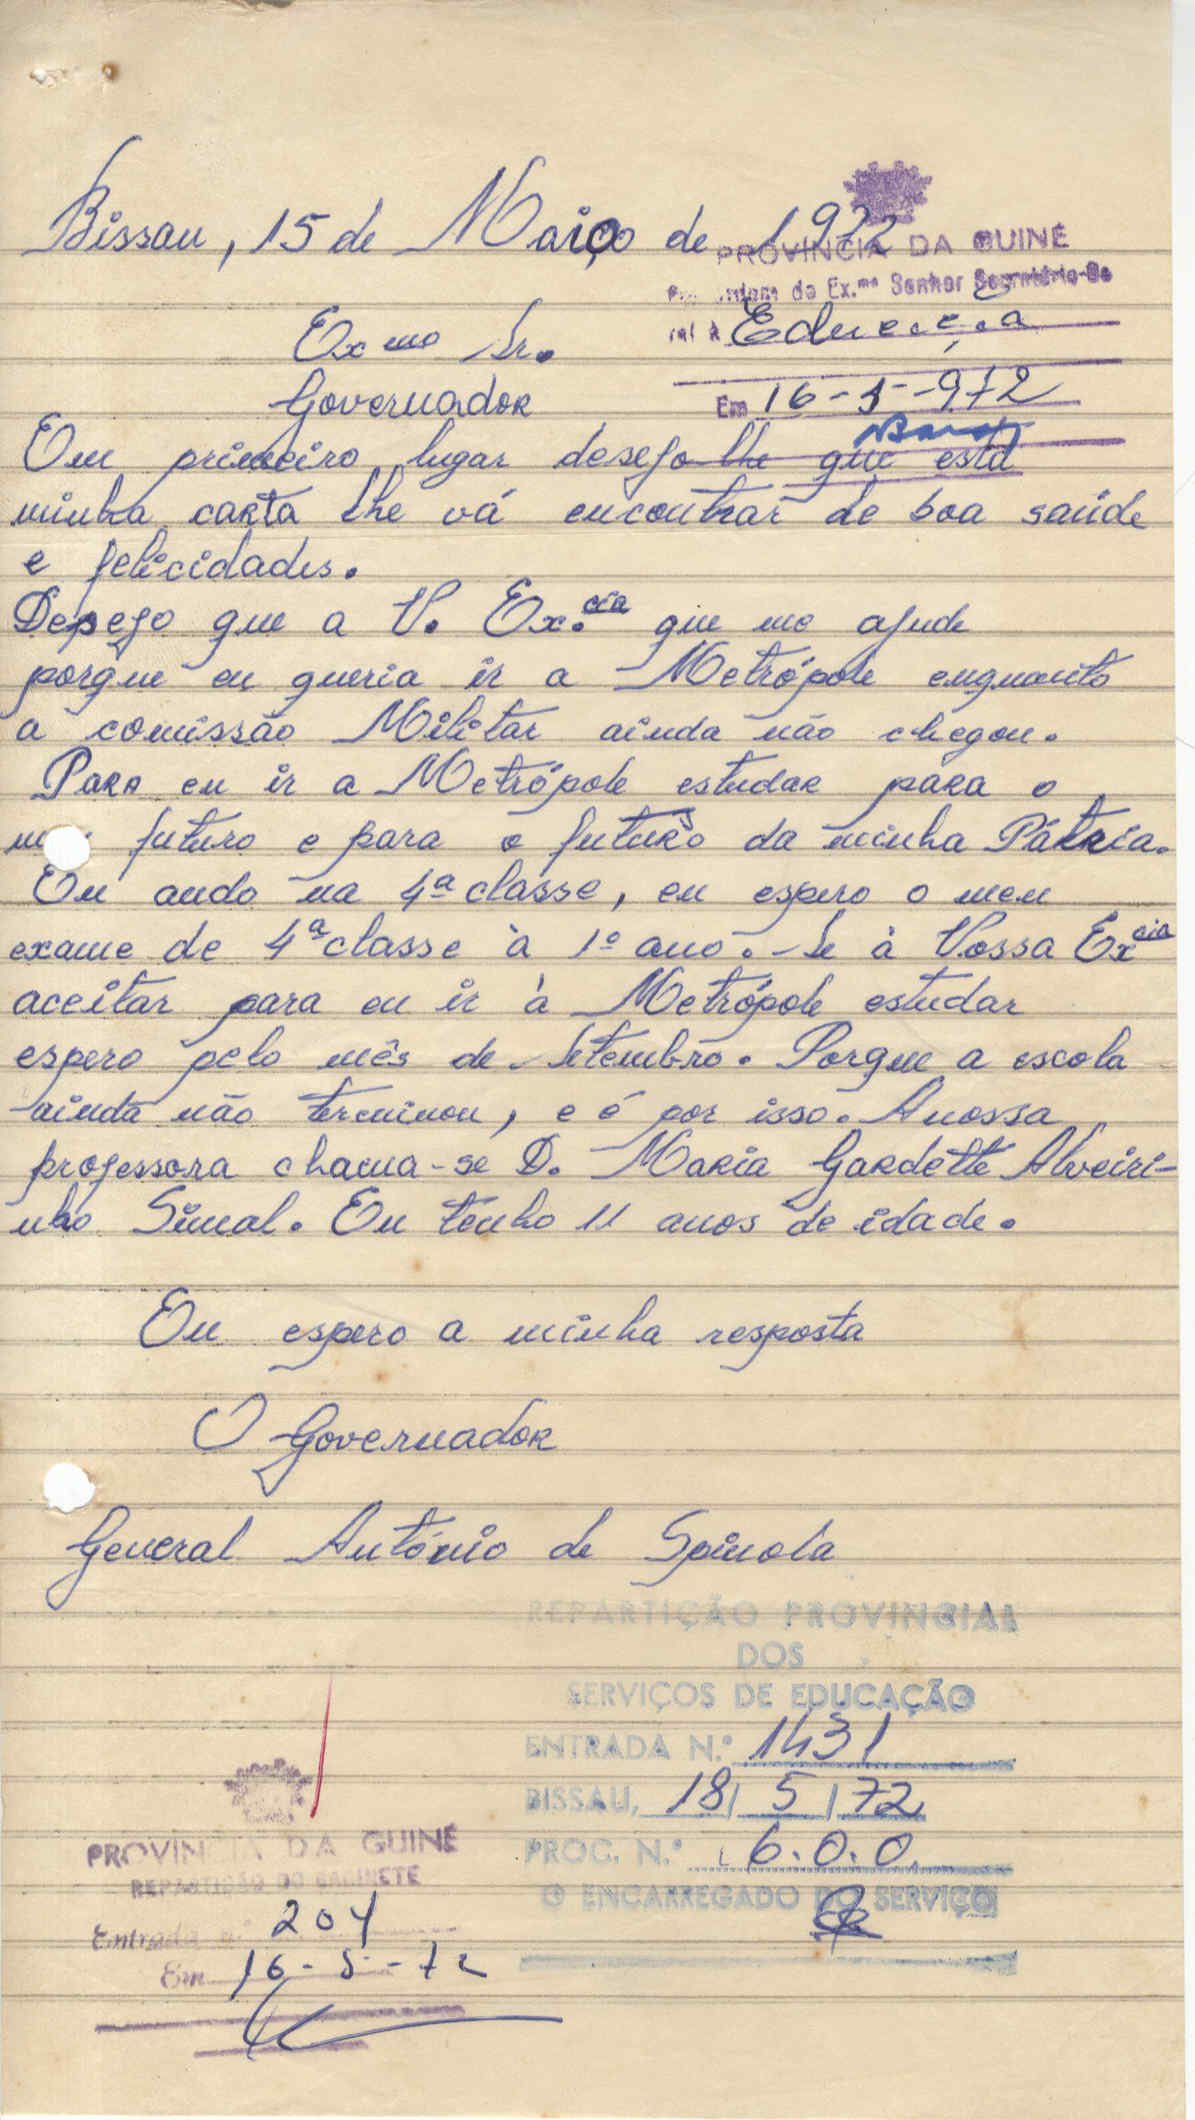 Bissau, 15 de Maio de 1972
PROVINCIA DA GUINÉ
ordem de Ex.mo Senhor Secretário-Ge
ral à Educação
Exmo Sr.
Governador
Em 16-5-972
Em primeiro lugar desejo lhe que está
minha carta lhe vá encontrar de boa saúde
e felicidades.
Depejo que a V. Ex.cia que me ajude
porque eu queria ir a Metrópole enquanto
a comissão Militar ainda não chegou.
Para eu ir a Metrópole estudar para o
futuro e para o futuro da minha Pátria.
Eu ando na 4ª classe, eu espero o meu
exame de 4ª classe à 1º ano. Se à Vossa Excia
aceitar para eu ir à Metrópole estudar
espero pelo mês de Setembro. Porque a escola
ainda não terminou, e é por isso. A nossa
professora chama-se D. Maria Gardette Alveiri-
nho Simal. Eu tenho 11 anos de idade.
Eu espero a minha resposta
O Governador
General António de Spinola
REPARTIÇÃO PROVINCIAL
DOS
SERVIÇOS DE EDUCAÇÃO
ENTRADA N.º 1431
BISSAU, 18/5/72
PROC. N.º 6.0.0.
O ENCARREGADO DO SERVIÇO
PROVINCIA DA GUINÉ
REPARTIÇÃO DO GABINETE
Entrada n.º 204
Em 16-5-72